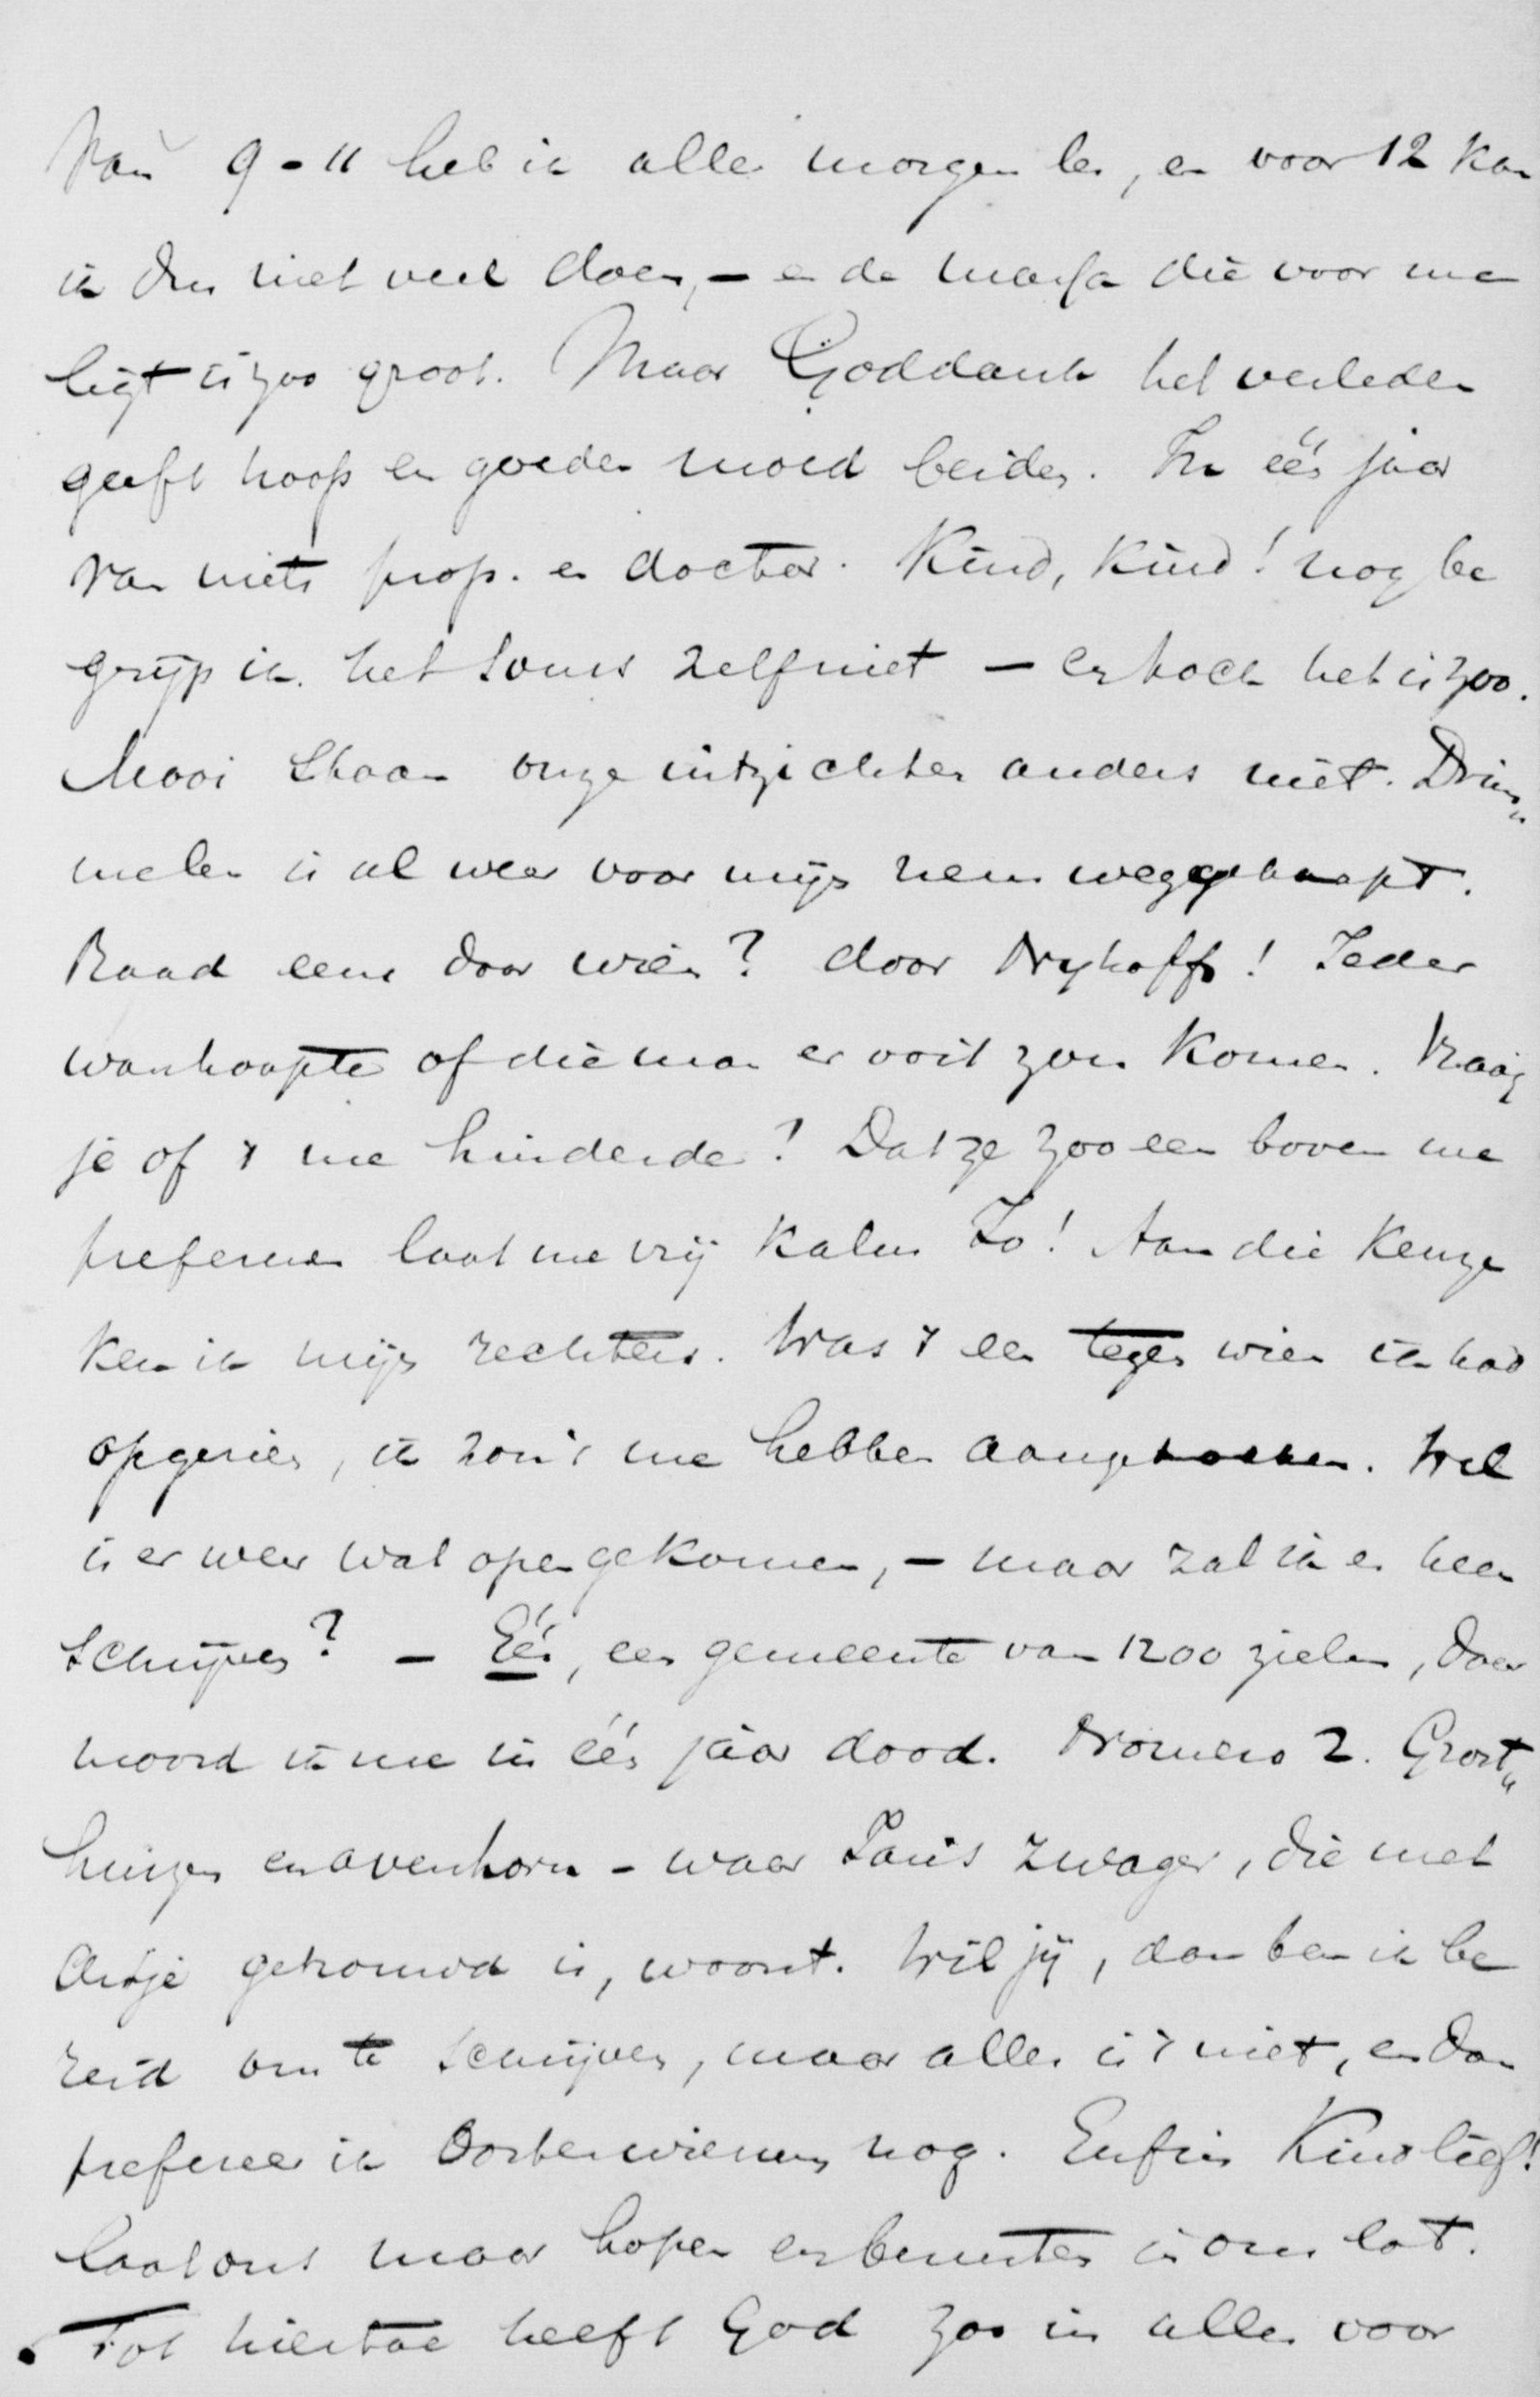 Van 9-11 heb ik alle morgen les, en voor 12 kan
ik dus niet veel doen, - en de massa die voor me
ligt is zoo groot. Maar Goddank het verleden
geeft hoop en goeden moed beiden. In één jaar
van niets prop. en doctor. Kind, Kind! nog be
grijp ik het soms zelf niet - en toch het is zoo.
Mooi staan onze uitzichten anders niet. Drim„
melen is al weer voor mijn neus weggekaapt.
Raad eens door wien? door Dryhoff! Ieder
wanhoopte of die man er ooit zou komen. Vraag
je of 't me hinderde? Dat ze zoo een boven me
prefereren laat me vrij kalm Jo! Aan die keuze
ken ik mijn rechters. Was 't een tegen wien ik had
opgezien, ik zou 't me hebben aangetrokken. Wel
is er weer wat open gekomen, - maar zal ik er heen
schrijven? - Eén, een gemeente van 1200 zielen, daar
moord ik me in één jaar dood. Nomero 2. Groot„
huizen en avenhorn - waar Pauls zwager, die met
Antje getrouwd is, woont. Wil jij, dan ben ik be
reid om te schrijven, maar alles is 't niet, en dan
prefereer ik Oosterwierum nog. Enfin Kindlief!
laat ons maar hopen en bemint er is ons lot.
Tot hiertoe heeft God zoo in alles voor